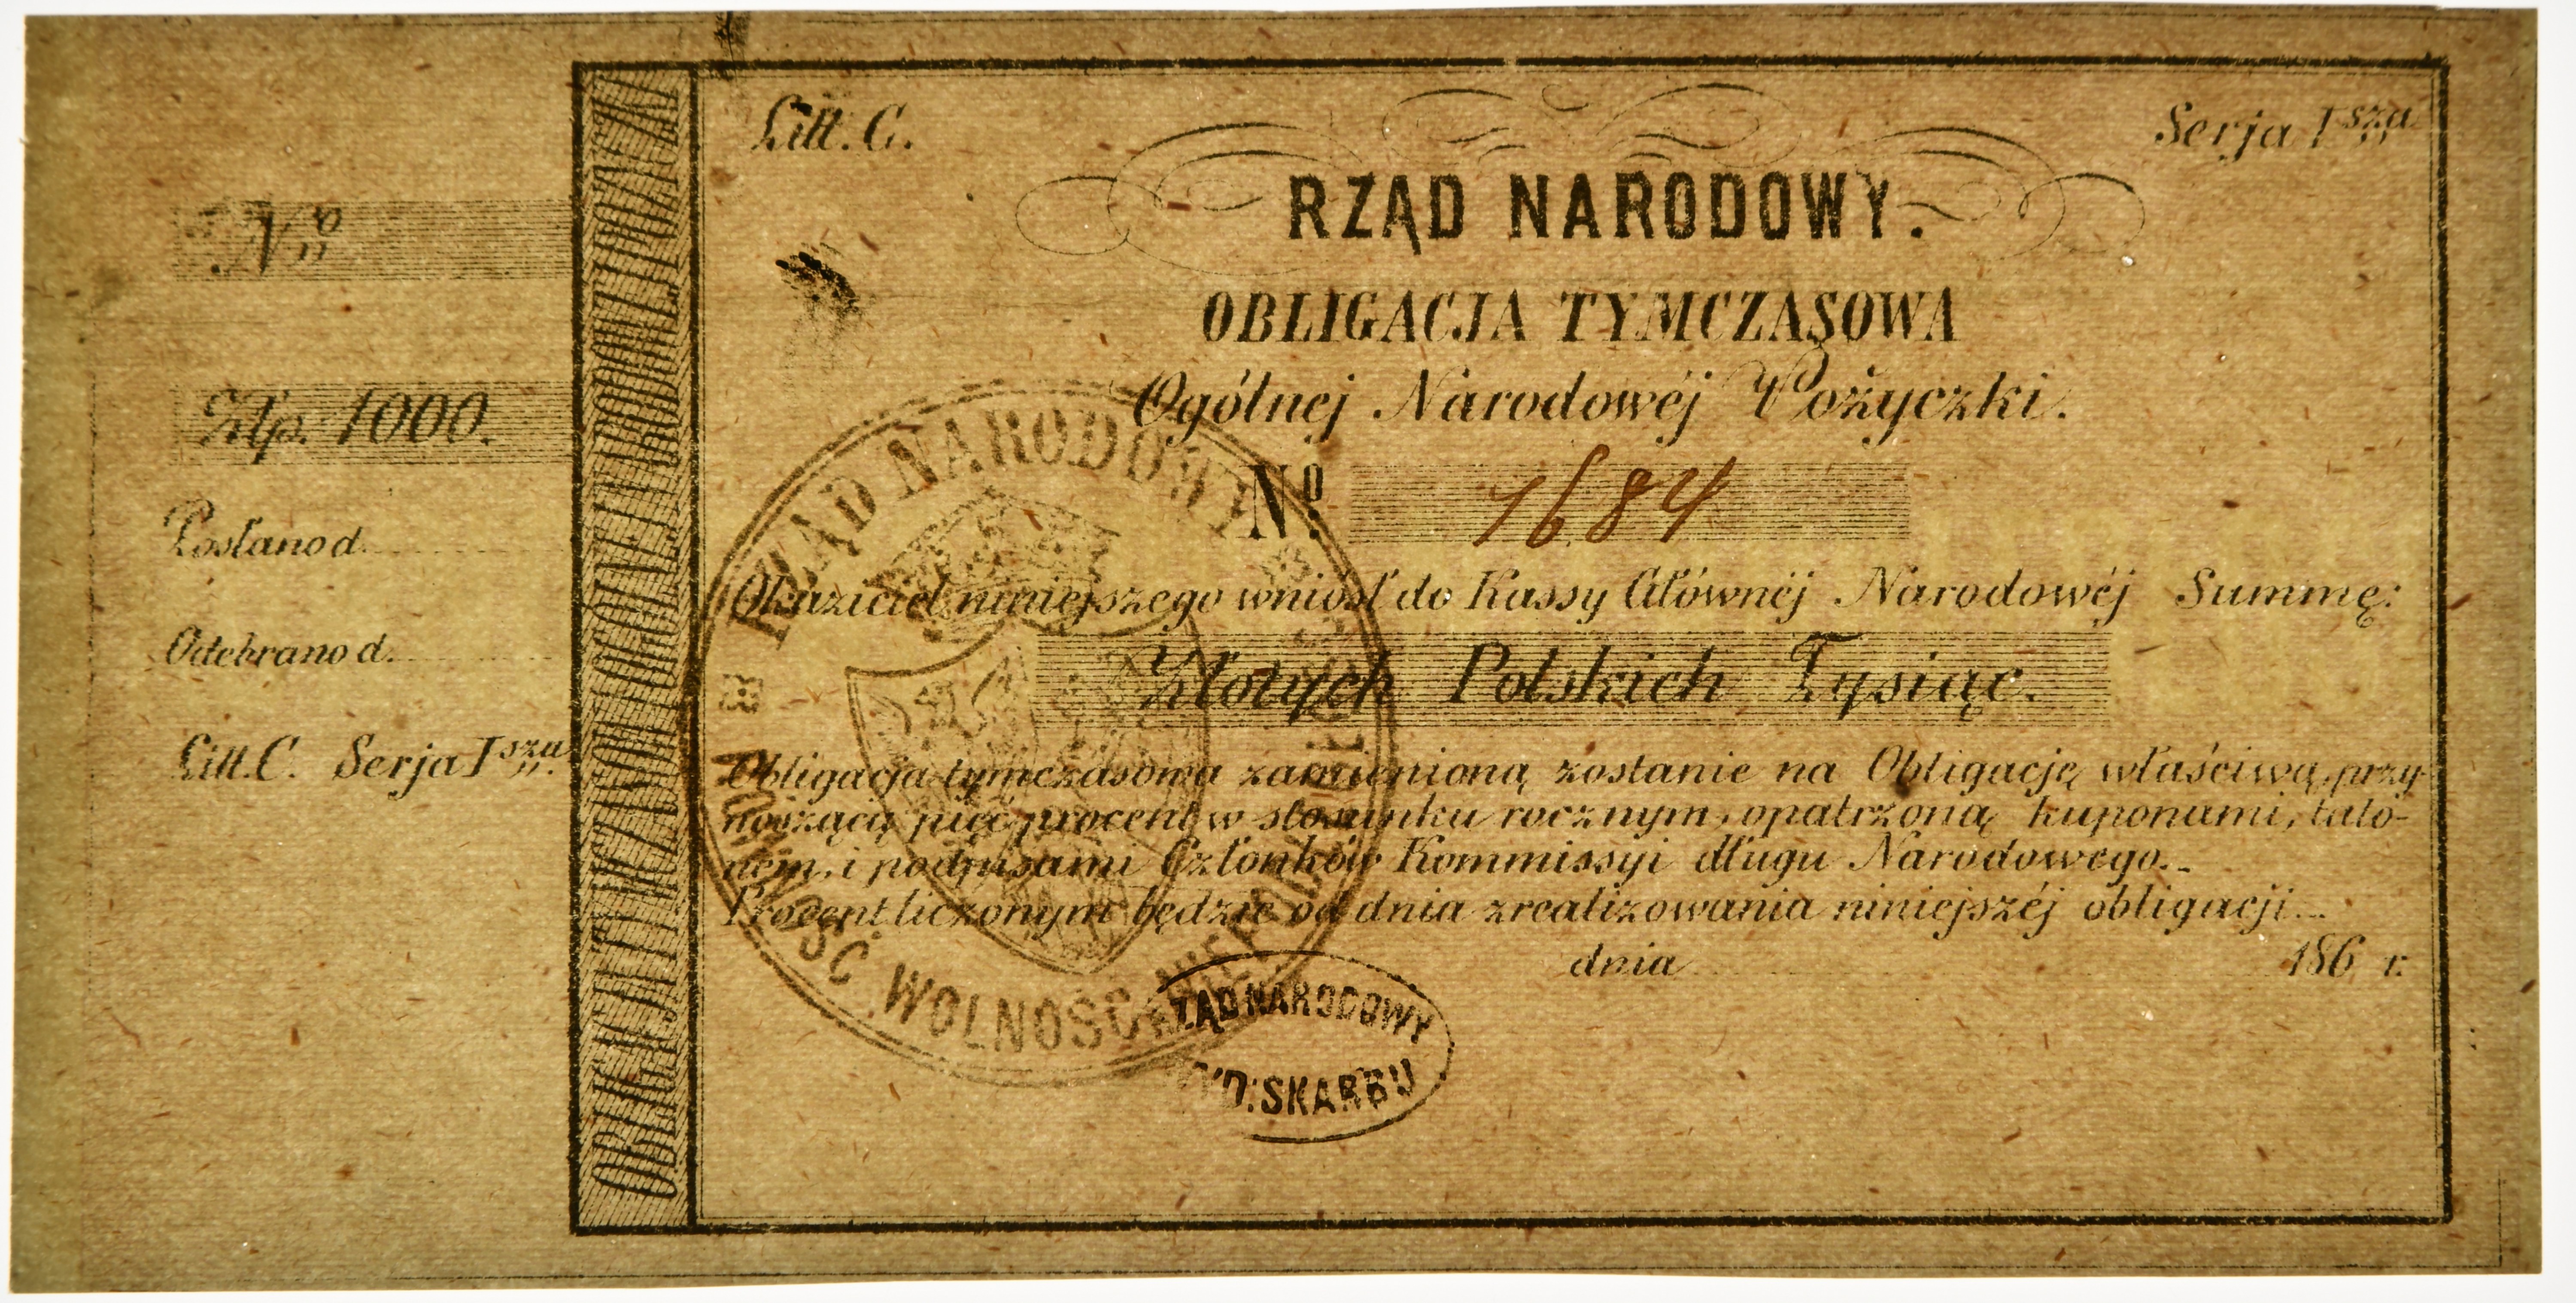 Litt. C.
Serja I sza
RZĄD NARODOWY.
OBLIGACJA TYMCZASOWA
Ogólnej Narodowéj Pożyczki.
No. 1684
Okaziciel niniejszego wniósł do Kassy Głównéj Narodowéj Summę:
Złotych Polskich Tysiąc.
Obligacja tymczasowa zamienioną zostanie na Obligację właściwą, przy-
noszącą pięć procent w stosunku rocznym, opatrzoną kuponami, talo-
nem, i podpisami Członków Kommissyi długu Narodowego.
Procent liczonym będzie od dnia zrealizowania niniejszéj obligacji.
dnia 186 r.
No
Złp. 1000.
Posłano d.
Odebrano d.
Litt. C. Serja I sza
RZĄD NARODOWY
WOLNOŚĆ
RZĄD NARODOWY
SKARBU